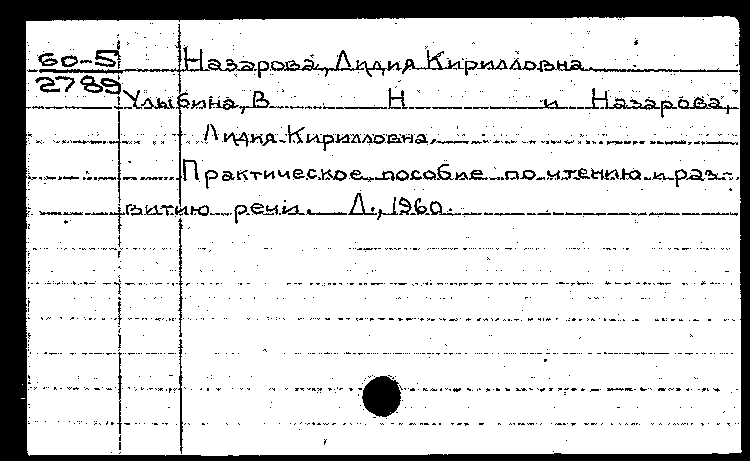 60-5 Назарова, Лидия Кирилловна.
2789 Улыбина, В Н и Назарова,
Лидия Кирилловна.
Практическое пособие по чтению и раз-
витию речи. Л., 1960.